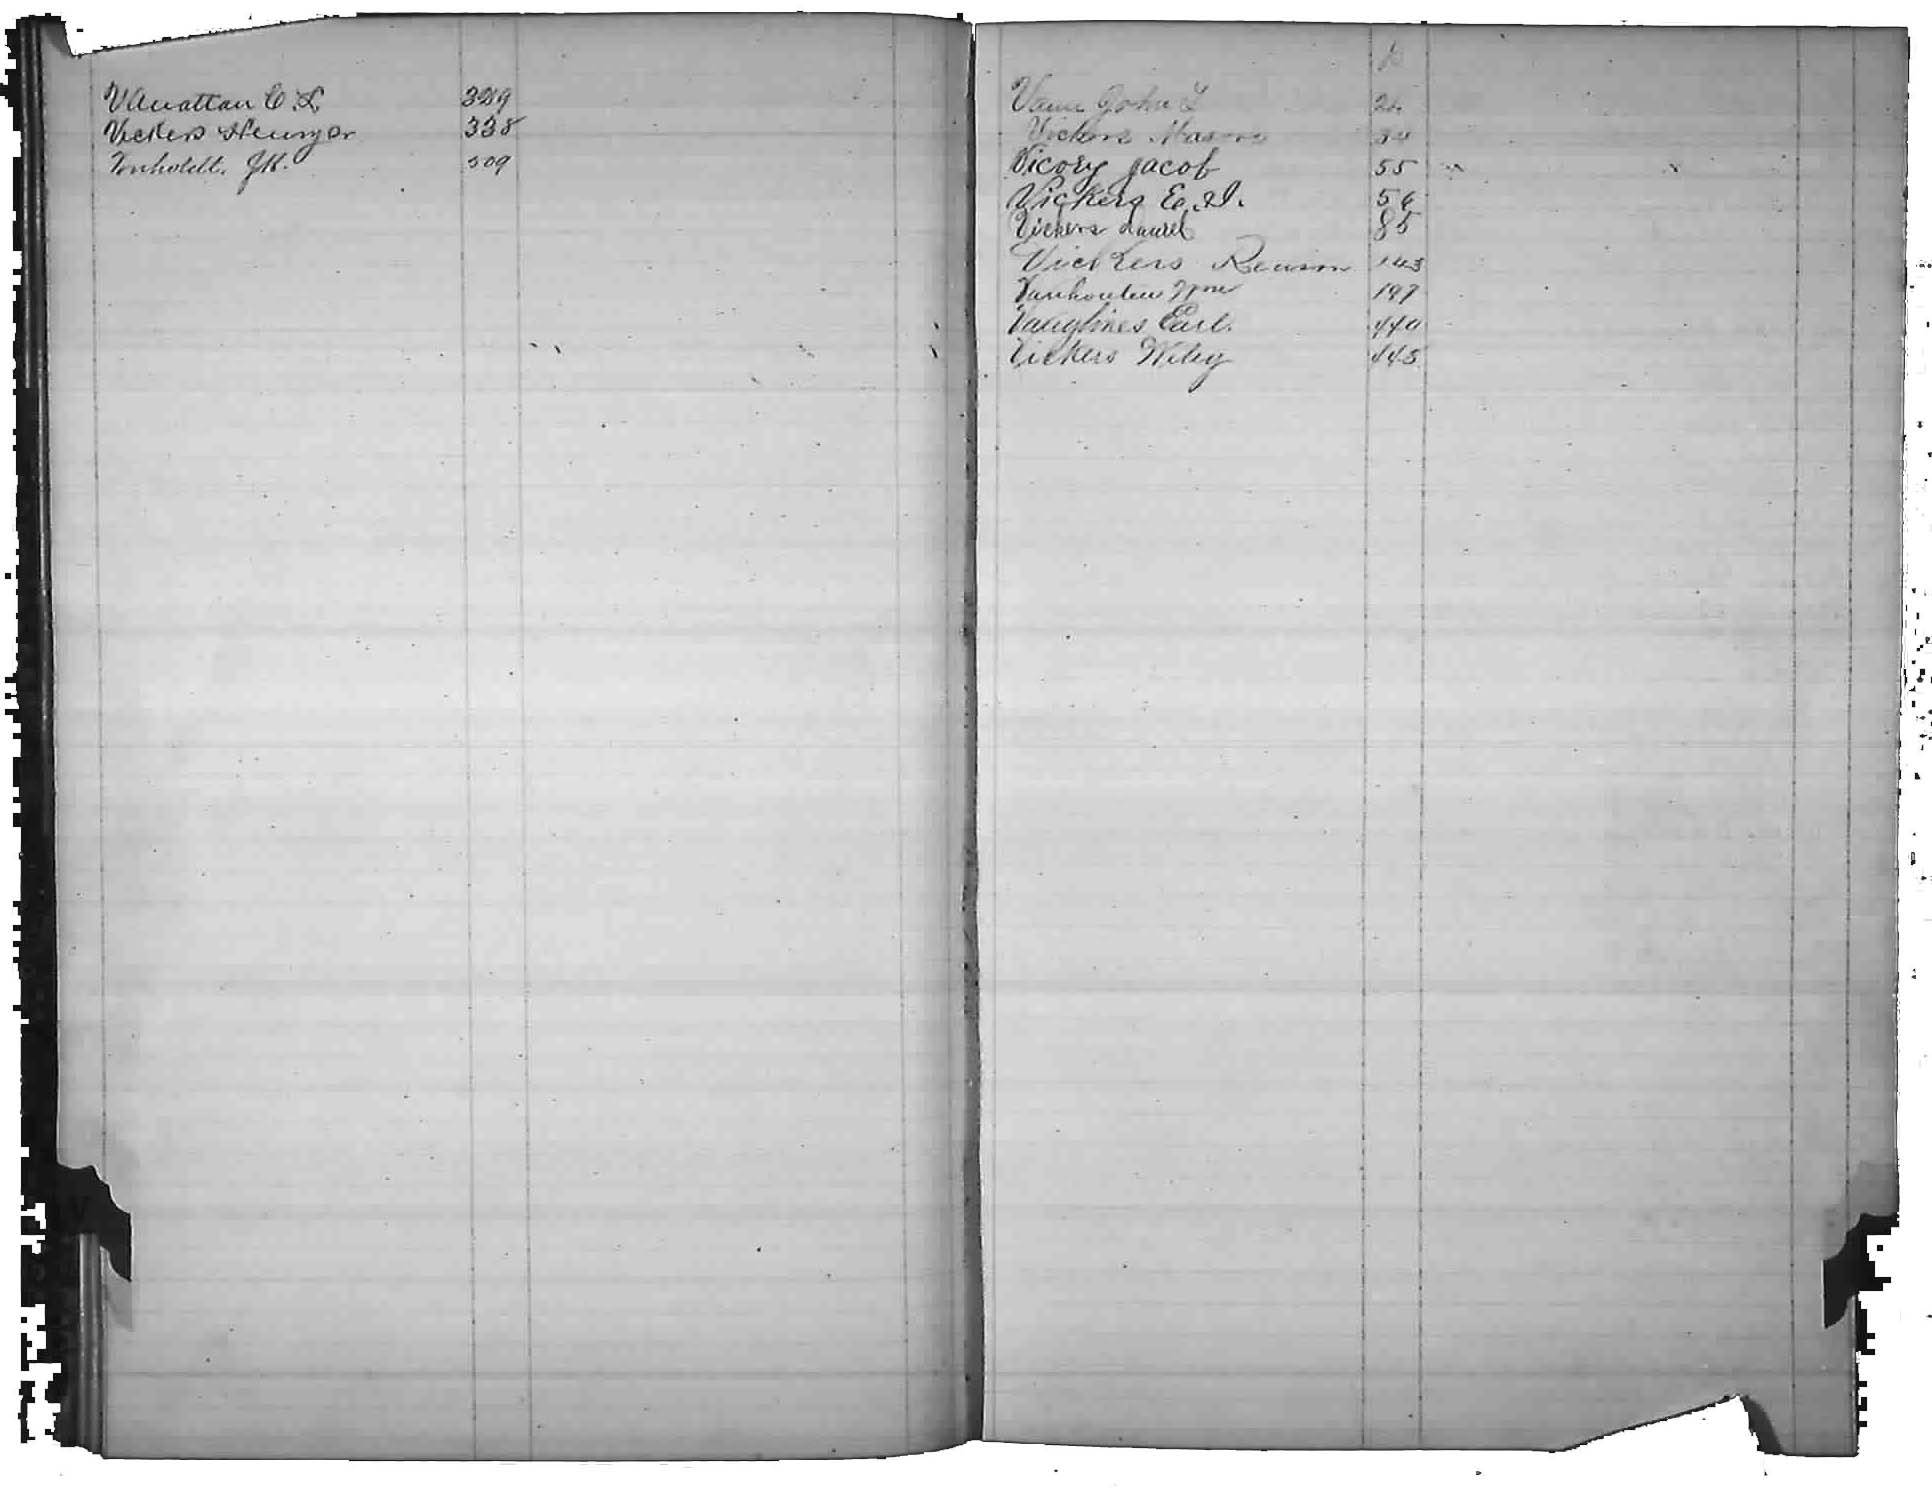 VAnattan C. L. 329
Vickers Henry Jr 338
Vonholdt, J.H. 509
Vann John L 26
Vickers Mason 34
Vicory Jacob 55
Vickers E. I. 56
Vickers Laurel 85
Vickers Reason 143
Vanhouten Wm 197
Earl. 440
Vickers Wiley 445
V